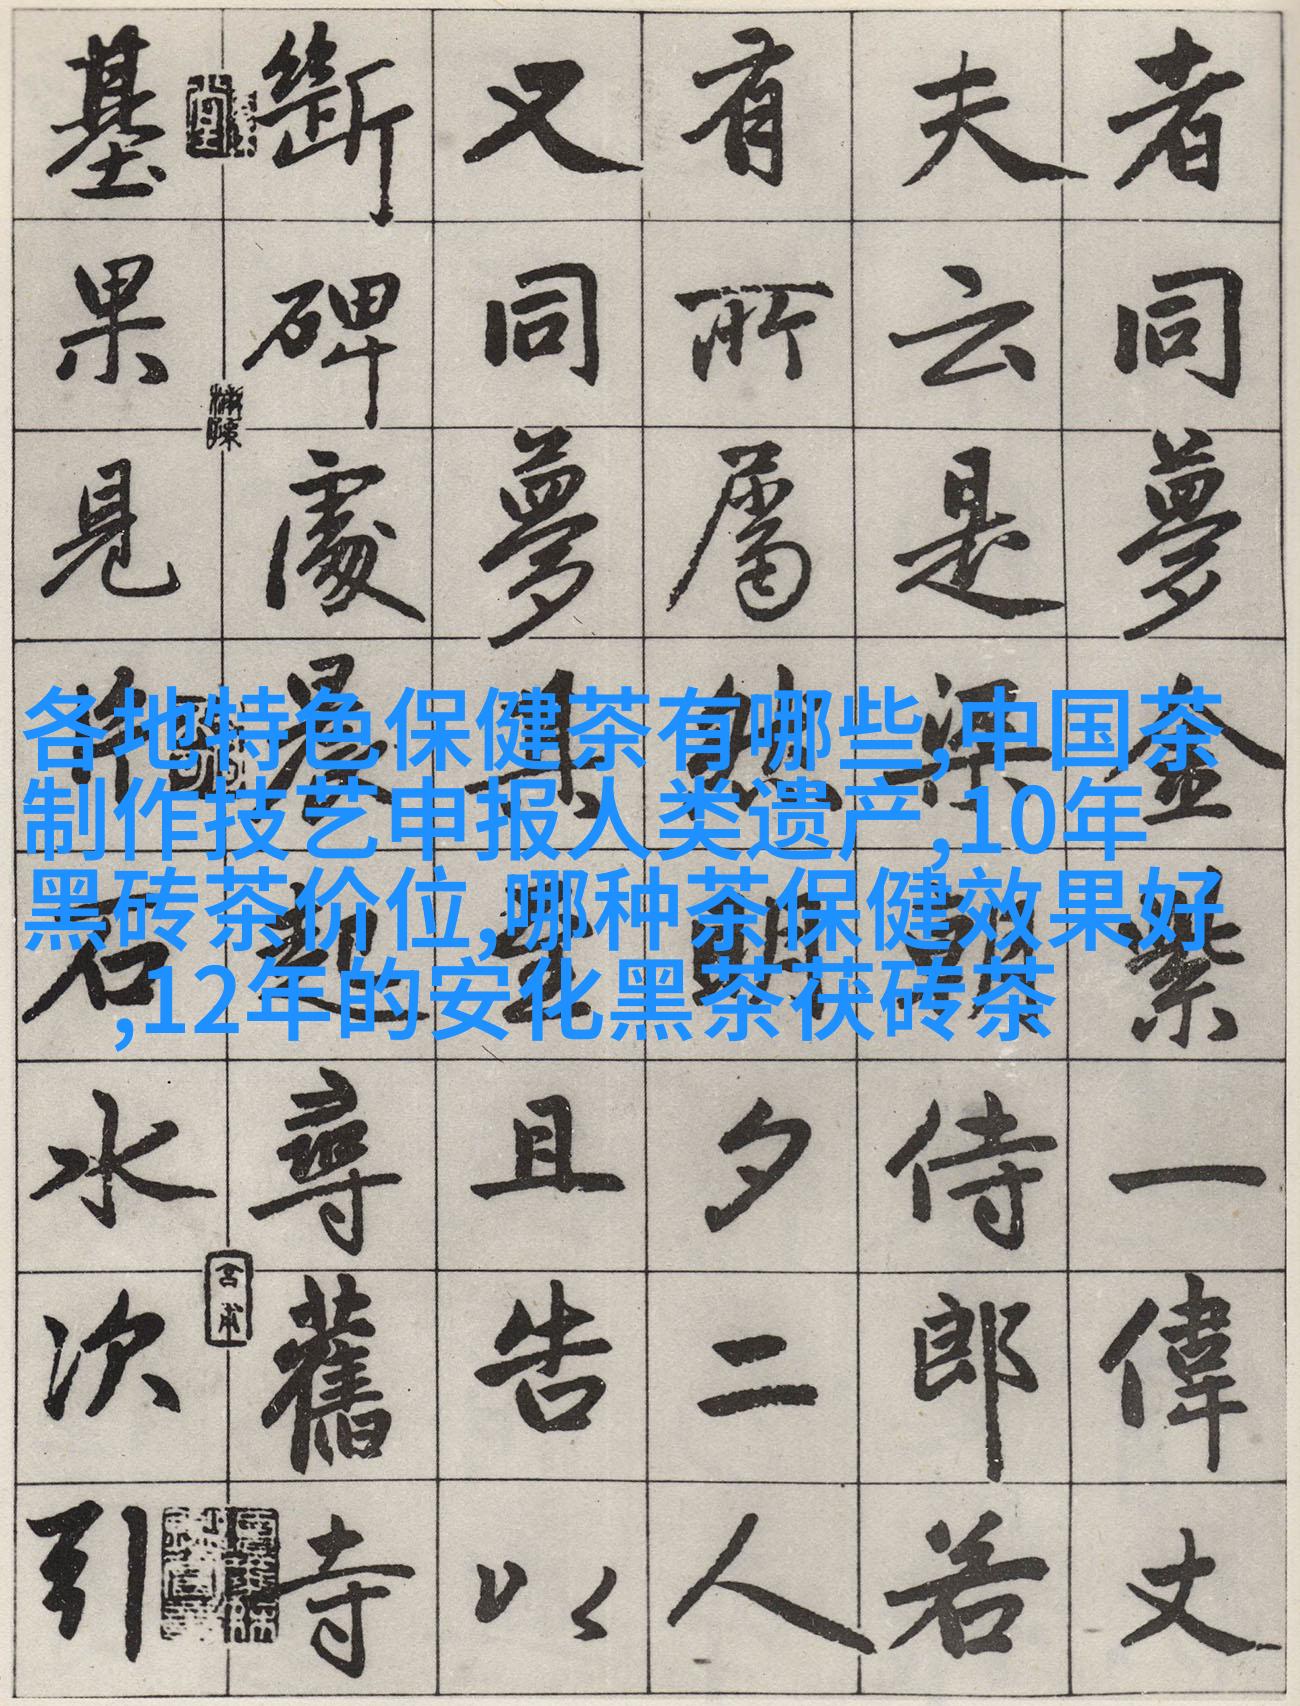 者同夢金紫一偉丈
夫云是梁朝侍郎若
有所屬然明夕二人
又同夢且告以
斷碑處晨起尋舊寺
基果見片石水次引
各地特色保健茶有哪些,中国茶
制作技艺申报人类遗产,10年
黑砖茶价位,哪种茶保健效果好
,12年的安化黑茶茯砖茶